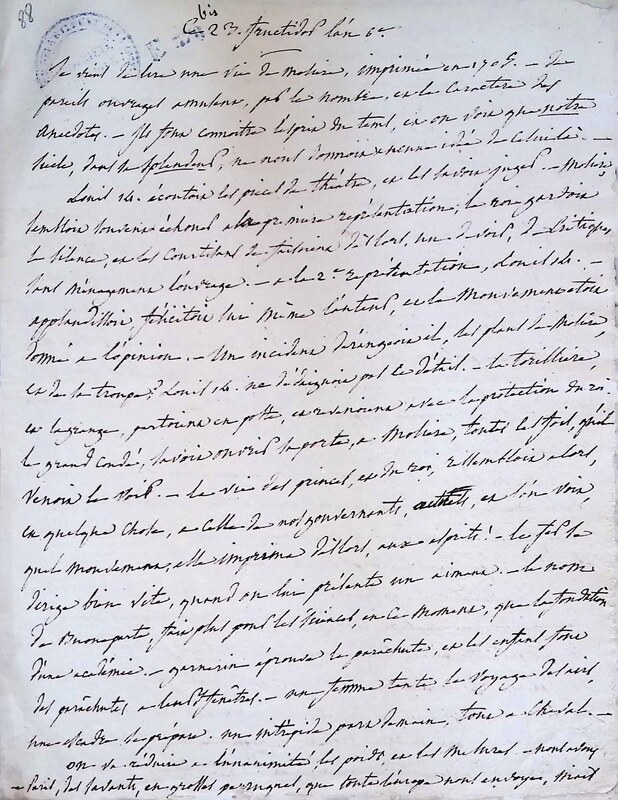 88
bis
Ce 23. fructidor l'an 6e.
Je viens de lire une vie de Moliere, imprimée en 1705. – de
pareils ouvrages amusent, par le nombre, et le caractere des
anecdotes. – Ils font connoitre l'esprit du tems, et on voit que notre
siècle, dans sa splendeur, ne nous donnoit aucune idée de celui là. –
Louis 14. écoutoit les pieces de théâtre, et les savoit juger. – Moliere,
sembloit souvent échouer a la premiere représentation; le roy gardoit
le silence, et les Courtisans de faisoient dèslors, un devoir, de critiquer
sans ménagement l'ouvrage. – a la 2e. représentation, Louis 14. –
applaudissoit, félicitoit lui même l'auteur, et le mouvement étoit
donné a l'opinion. – Un incident dérangeoit il, les plans de Moliere,
et de sa troupe? Louis 14. ne dédaignoit pas ce détail. – la torilliere,
et lagrange, partoient en poste, et revenoient avec la protection du roi.
le grand Condé, savoit ouvrir sa porte, a Moliere, toutes les fois, qu'il
venoit le voir. – la vie des princes, et du roi, ressembloit alors,
en quelque chose, a celle de nos gouvernants, et l'on voit,
quel mouvement, elle imprime dèslors, aux esprits! – le fer se
dirige bien vite, quand on lui présente un aimant. – le nom
de Buonaparte, fait plus pour les sciences, en ce moment, que la fondation
d'une académie. – garnerin éprouve le parachute, et les enfans font
des parachutes a leurs fenêtres. – une femme tente le voyage des airs,
une se prépare, un intrépide part demain, tout a cheval. –
on va réduire a l'unanimité les poids, et les mesures – nous avons
a Paris, des savants, en grosses perruques, que toute l'europe nous envoye,